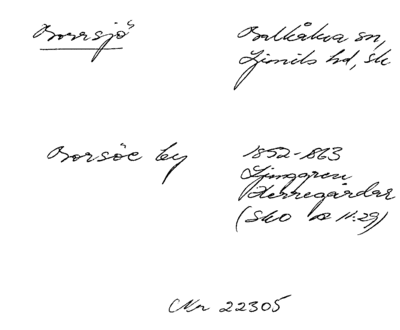 Borrsjö
Balkåkra sn,
Ljunits hd, sk
Borsöe by
1852-1863
Ljunggren
Herregårdar
(Sko 11:29)
Nr 22305